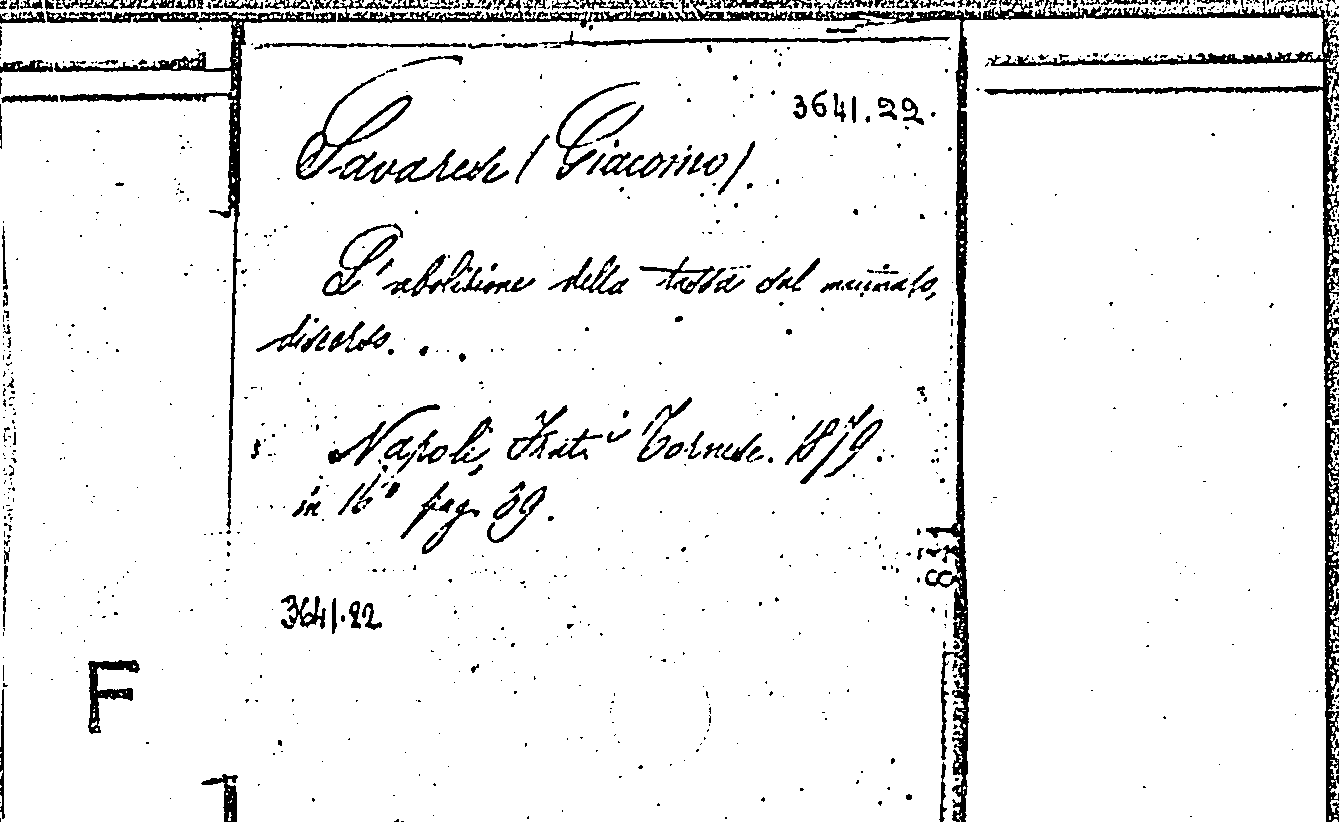 3641.22.
Savarese (Giacomo).
L'abolizione della tassa sul macinato,
discorso. . .
Napoli, Frat.i Tornese. 1879.
in 16° pag. 39.
3641.22
F